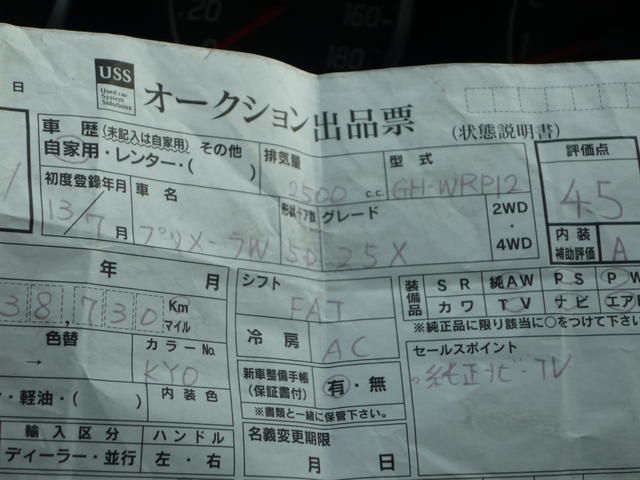 20
160
180
USS
Used car
System
Solutions
オークション出品票
(状態説明書)
日
車 歴 (未記入は自家用) その他
自家用・レンター・( )
排気量
2500 c.c.
型式
GH-WRP12
評価点
4.5
初度登録年月
13/7月
車名
プリメーラW
形状 ドア数
5D
グレード
25X
2WD
・
4WD
内装
補助評価
A
年 月
シフト
FAT
装備品
SR 純AW PS PW
カワ TV ナビ エア
※純正品に限り該当に○をつけて下
38,730
Km
マイル
冷房
AC
セールスポイント
純正ナビ-TV
色替
→
カラーNo.
KY0
新車整備手帳
(保証書付)
有・無
※書類と一緒に保管下さい。
・軽油・( )
内装色
輸入区分
ハンドル
名義変更期限
月 日
ディーラー・並行
左・右